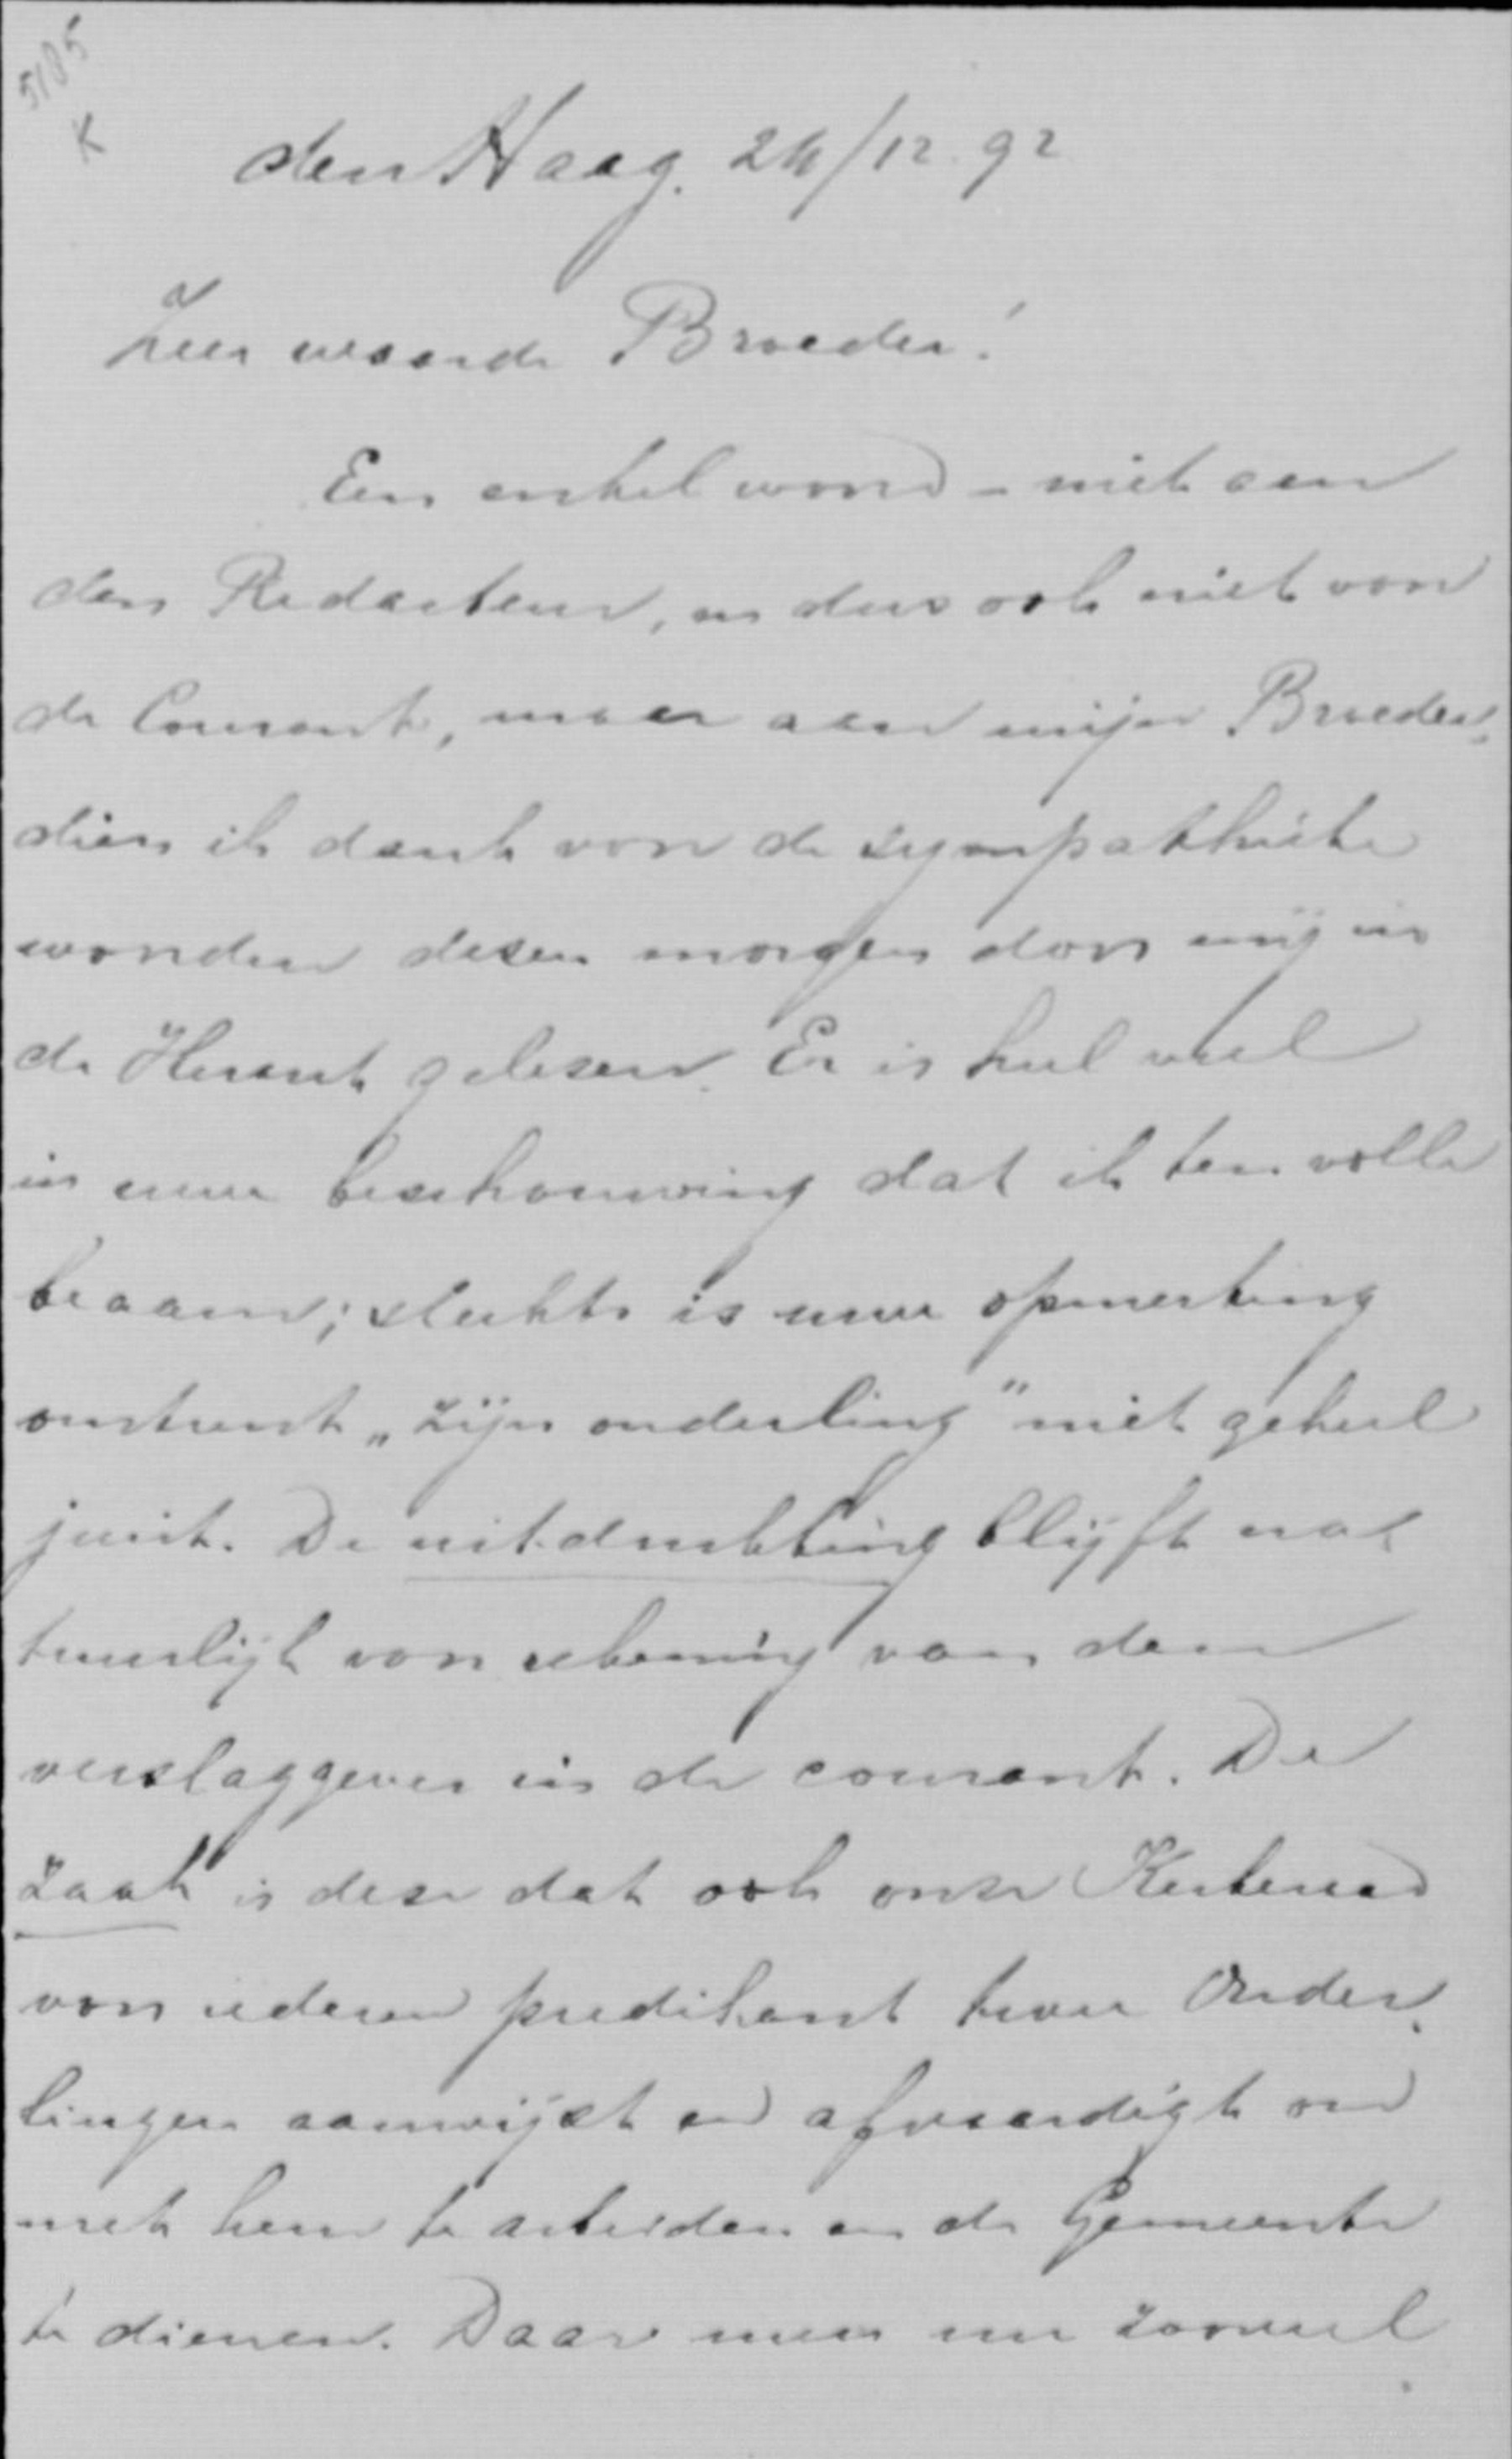 5185
K
den Haag. 24/12. 92
Zeer waarde Broeder!
Een enkel woord – niet aan
den Redacteur, en dus ook niet voor
de Courant, maar aan mijn Broeder,
dien ik dank voor de sympathieke
woorden dezen morgen door mij in
de Heraut gelezen. Er is heel veel
in uwe beschouwing dat ik ten volle
beaam; slechts is uwe opmerking
omtrent „zijn ouderling" niet geheel
juist. De uitdrukking blijft na-
tuurlijk voor rekening van den
verslaggever in de courant. De
zaak is deze dat ook onze Kerkeraad
voor iederen predikant twee Ouder-
lingen aanwijst en afvaardigt om
met hem te arbeiden en de Gemeente
te dienen. Daar men nu zooveel